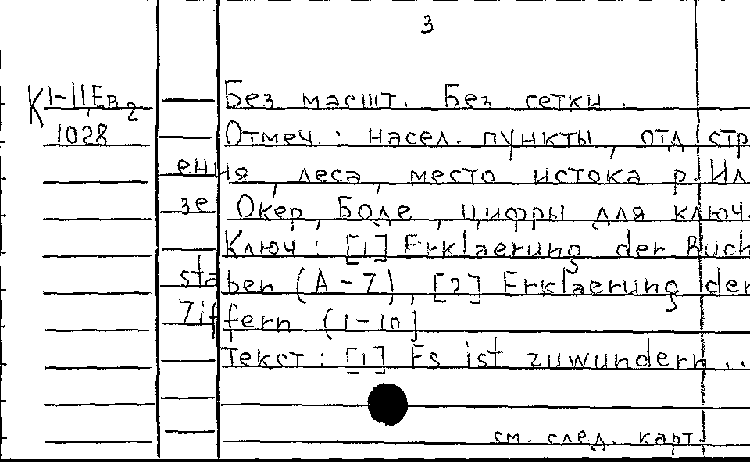 3
К 1-II Ев 2 Без масшт. Без сетки.
1028 Отмеч.: насел. пункты, отд стр
ения, леса, место истока р. Ил
зе Окер, Боде, цифры для ключа
Ключ: [1] Erklaerung der Buch
staben (A-Z), [2] Erklaerung der
Ziffern (1-10]
Текст: [1] Es ist zuwundern...
см. след. карт.